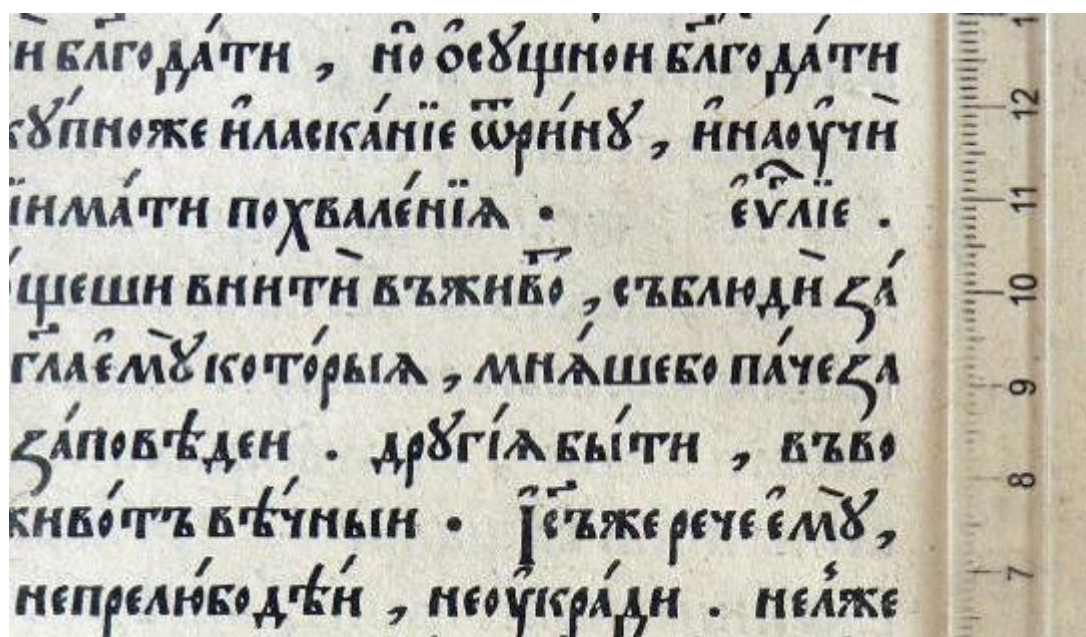 й блг҃ода́ти , но̑ о̑сꙋщной блг҃ода́ти
кꙋ́пноже и̑ласка́нїе ѿри́нꙋ , и̑наоу̑чѝ
їима́ти похвале́нїѧ · є̑ѵⷢ҇лїе .
щеши внитѝ въживо̑ , съблюдѝ ꙁа́
гл҃а є̑мꙋ̀ кото́рыѧ , мнѧ́шебо па́чеꙁа
ꙁа́повѣдеи . дрꙋгі́ѧ бы́ти , въво
живо́тъ вѣ́чныи · І҆с҃ъже рече є̑мꙋ̀ ,
непрелю́бодѣ́и , неоу̑кра́ди . нел̾же
12
11
10
9
8
7